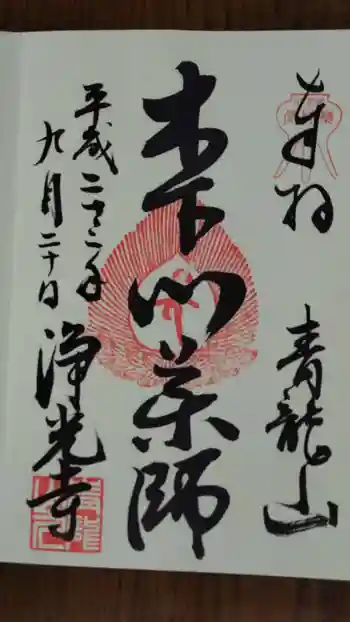 奉拝 青龍山
木下川薬師
平成二十二年
九月二十日 浄光寺